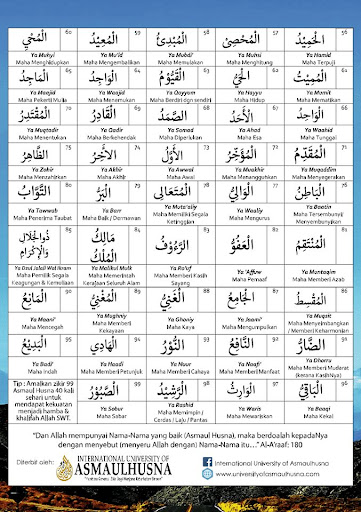 56
الْحَمِيْدُ
Ya Hamid
Maha Terpuji
57
الْمُحْصِيْ
Ya Muhsi
Maha Menghitung
58
الْمُبْدِئُ
Ya Mubdi'
Maha Memulakan
59
الْمُعِيْدُ
Ya Mu'id
Maha Mengembalikan
60
الْمُحْيِيْ
Ya Muhyi
Maha Menghidupkan
61
الْمُمِيْتُ
Ya Mumit
Maha Mematikan
62
الْحَيُّ
Ya Hayy
Maha Hidup
63
الْقَيُّوْمُ
Ya Qayyom
Maha Berdiri dgn sendiri
64
الْوَاجِدُ
Ya Waajid
Maha Menemukan
65
الْمَاجِدُ
Ya Maajid
Maha Pekerti Mulia
66
الْوَاحِدُ
Ya Waahid
Maha Tunggal
67
الْأَحَدُ
Ya Ahad
Maha Esa
68
الصَّمَدُ
Ya Somad
Maha Diperlukan
69
الْقَادِرُ
Ya Qadir
Maha Berkehendak
70
الْمُقْتَدِرُ
Ya Muqtadir
Maha Menentukan
71
الْمُقَدِّمُ
Ya Muqaddim
Maha Menyegerakan
72
الْمُؤَخِّرُ
Ya Muakhir
Maha Menangguhkan
73
الْأَوَّلُ
Ya Awwal
Maha Awal
74
الْآخِرُ
Ya Akhir
Maha Akhir
75
الظَّاهِرُ
Ya Zahir
Maha Menzahirkan
76
الْبَاطِنُ
Ya Baatin
Maha Tersembunyi/
Menyembunyikan
77
الْوَالِيْ
Ya Waaliy
Maha Mengurus
78
الْمُتَعَالِى
Ya Muta'aliy
Maha Memiliki Segala
Ketinggian
79
الْبَرُّ
Ya Barr
Maha Baik / Dermawan
80
التَّوَّابُ
Ya Tawwab
Maha Penerima Taubat
81
الْمُنْتَقِمُ
Ya Muntaqim
Maha Memberi Azab
82
الْعَفُوُّ
Ya 'Affuw
Maha Pemaaf
83
الرَّءُوْفُ
Ya Ro'uf
Maha Memberi Kasih
Sayang
84
مَالِكُ
الْمُلْكُ
Ya Malikul Mulk
Maha Memerintah
Kerajaan Seluruh Alam
85
ذُوالْجَلَالِ
وَالْإِكْرَامِ
Ya Dzul Jalali Wal Ikram
Maha Pemilik Segala
Keagungan & Kemuliaan
86
الْمُقْسِطُ
Ya Muqsit
Maha Menyeimbangkan
/ Memberi Keharmonian
87
الْجَامِعُ
Ya Jaami'
Maha Mengumpulkan
88
الْغَنِيُّ
Ya Ghaniy
Maha Kaya
89
الْمُغْنِيُ
Ya Mughniy
Maha Memberi
Kekayaan
90
الْمَانِعُ
Ya Maani'
Maha Mencegah
91
الضَّارُّ
Ya Dharru
Maha Memberi Mudarat
(kerana KasihNya)
92
النَّافِعُ
Ya Naafi'
Maha Memberi Manfaat
93
النُّوْرُ
Ya Nuur
Maha Memberi Cahaya
94
الْهَادِيْ
Ya Haadi
Maha Memberi Petunjuk
95
الْبَدِيْعُ
Ya Badi'
Maha Indah
96
الْبَاقِيْ
Ya Baaqi
Maha Kekal
97
الْوَارِثُ
Ya Waris
Maha Mewariskan
98
الرَّشِيْدُ
Ya Rashid
Maha Memimpin /
Cerdas / Laju / Pantas
99
الصَّبُوْرُ
Ya Sobur
Maha Sabar
Tip : Amalkan zikir 99
Asmaul Husna 40 kali
sehari untuk
mendapat kekuatan
menjadi hamba &
khalifah Allah SWT.
"Dan Allah mempunyai Nama-Nama yang baik (Asmaul Husna), maka berdoalah kepadaNya
dengan menyebut (menyeru Allah dengan) Nama-Nama itu...." Al-A'raaf: 180
Diterbit oleh:
INTERNATIONAL UNIVERSITY OF
ASMAULHUSNA
International University of Asmaulhusna
www.universityofasmaulhusna.com